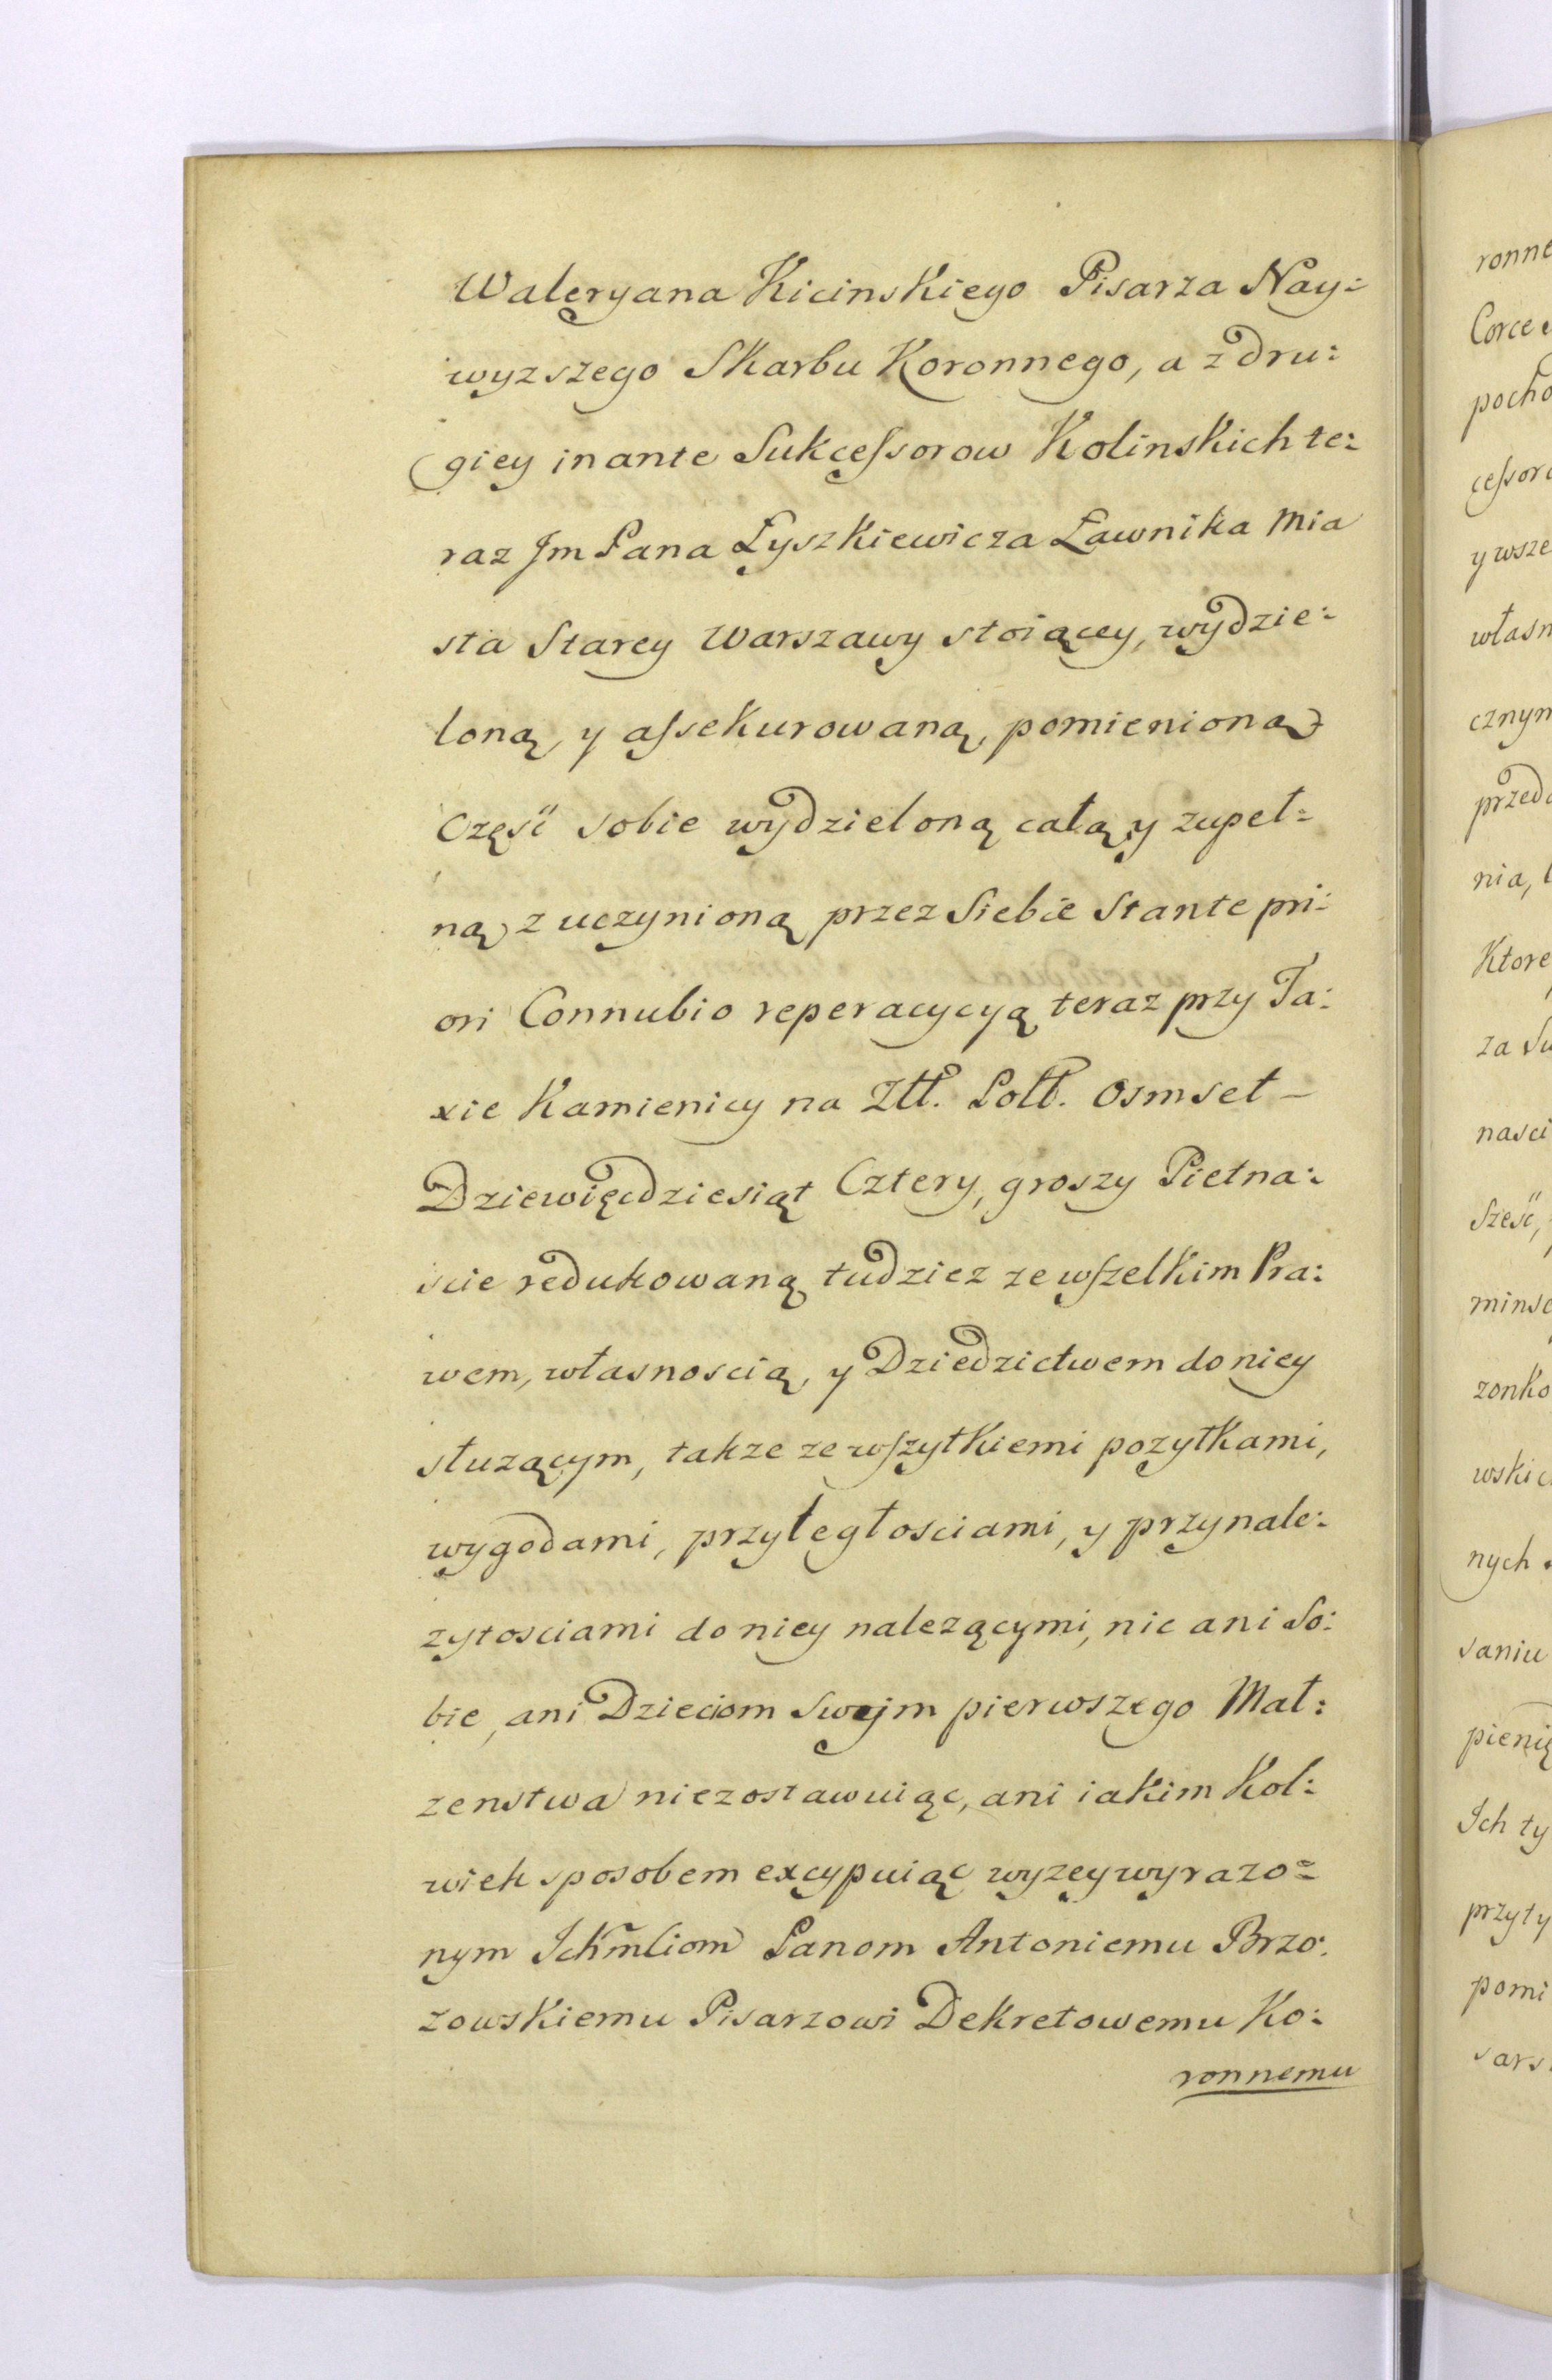 Waleryana Kicinskiego Pisarza Nay:
wyzszego Skarbu Koronnego, a z dru:
giey in ante Sukcessorow Kolinskich te:
raz Jm Pana Łyszkiewicza Ławnika Mia
sta Starey Warszawy stoiącey, wydzie:
loną y assekurowaną, pomienioną
Częsć sobie wydzieloną całą y zupeł:
ną z uczynioną przez Siebie Stante pri:
ori Connubio reperacycyą teraz przy Ta:
xie Kamienicy na Złł. Poll. Osmset —
Dziewięcdziesiąt Cztery, groszy Pietna:
scie redukowaną tudziez ze wszelkim Pra:
wem, własnoscią, y Dziedzictwem do niey
słuzącym, takze ze wszytkiemi pozytkami,
wygodami, przyległosciami, y przynale:
zytosciami do niey nalezącymi, nic ani So:
bie, ani Dzieciom swojm pierwszego Mał:
zenstwa niezostawuiąc, ani iakim Kol:
wiek sposobem excypuiąc wyzey wyrazo:
nym Ichmciom Panom Antoniemu Brzo:
zowskiemu Pisarzowi Dekretowemu Ko:
ronnemu
ronne
Corce
pocho
cessoro
y wsze
własn
cznym
przeda
nia,
Ktore
za Su
nasci
Szesć,
minsc
zonko
wskic
nych
saniu
pienię
Ich ty
przyty
pomi
sars